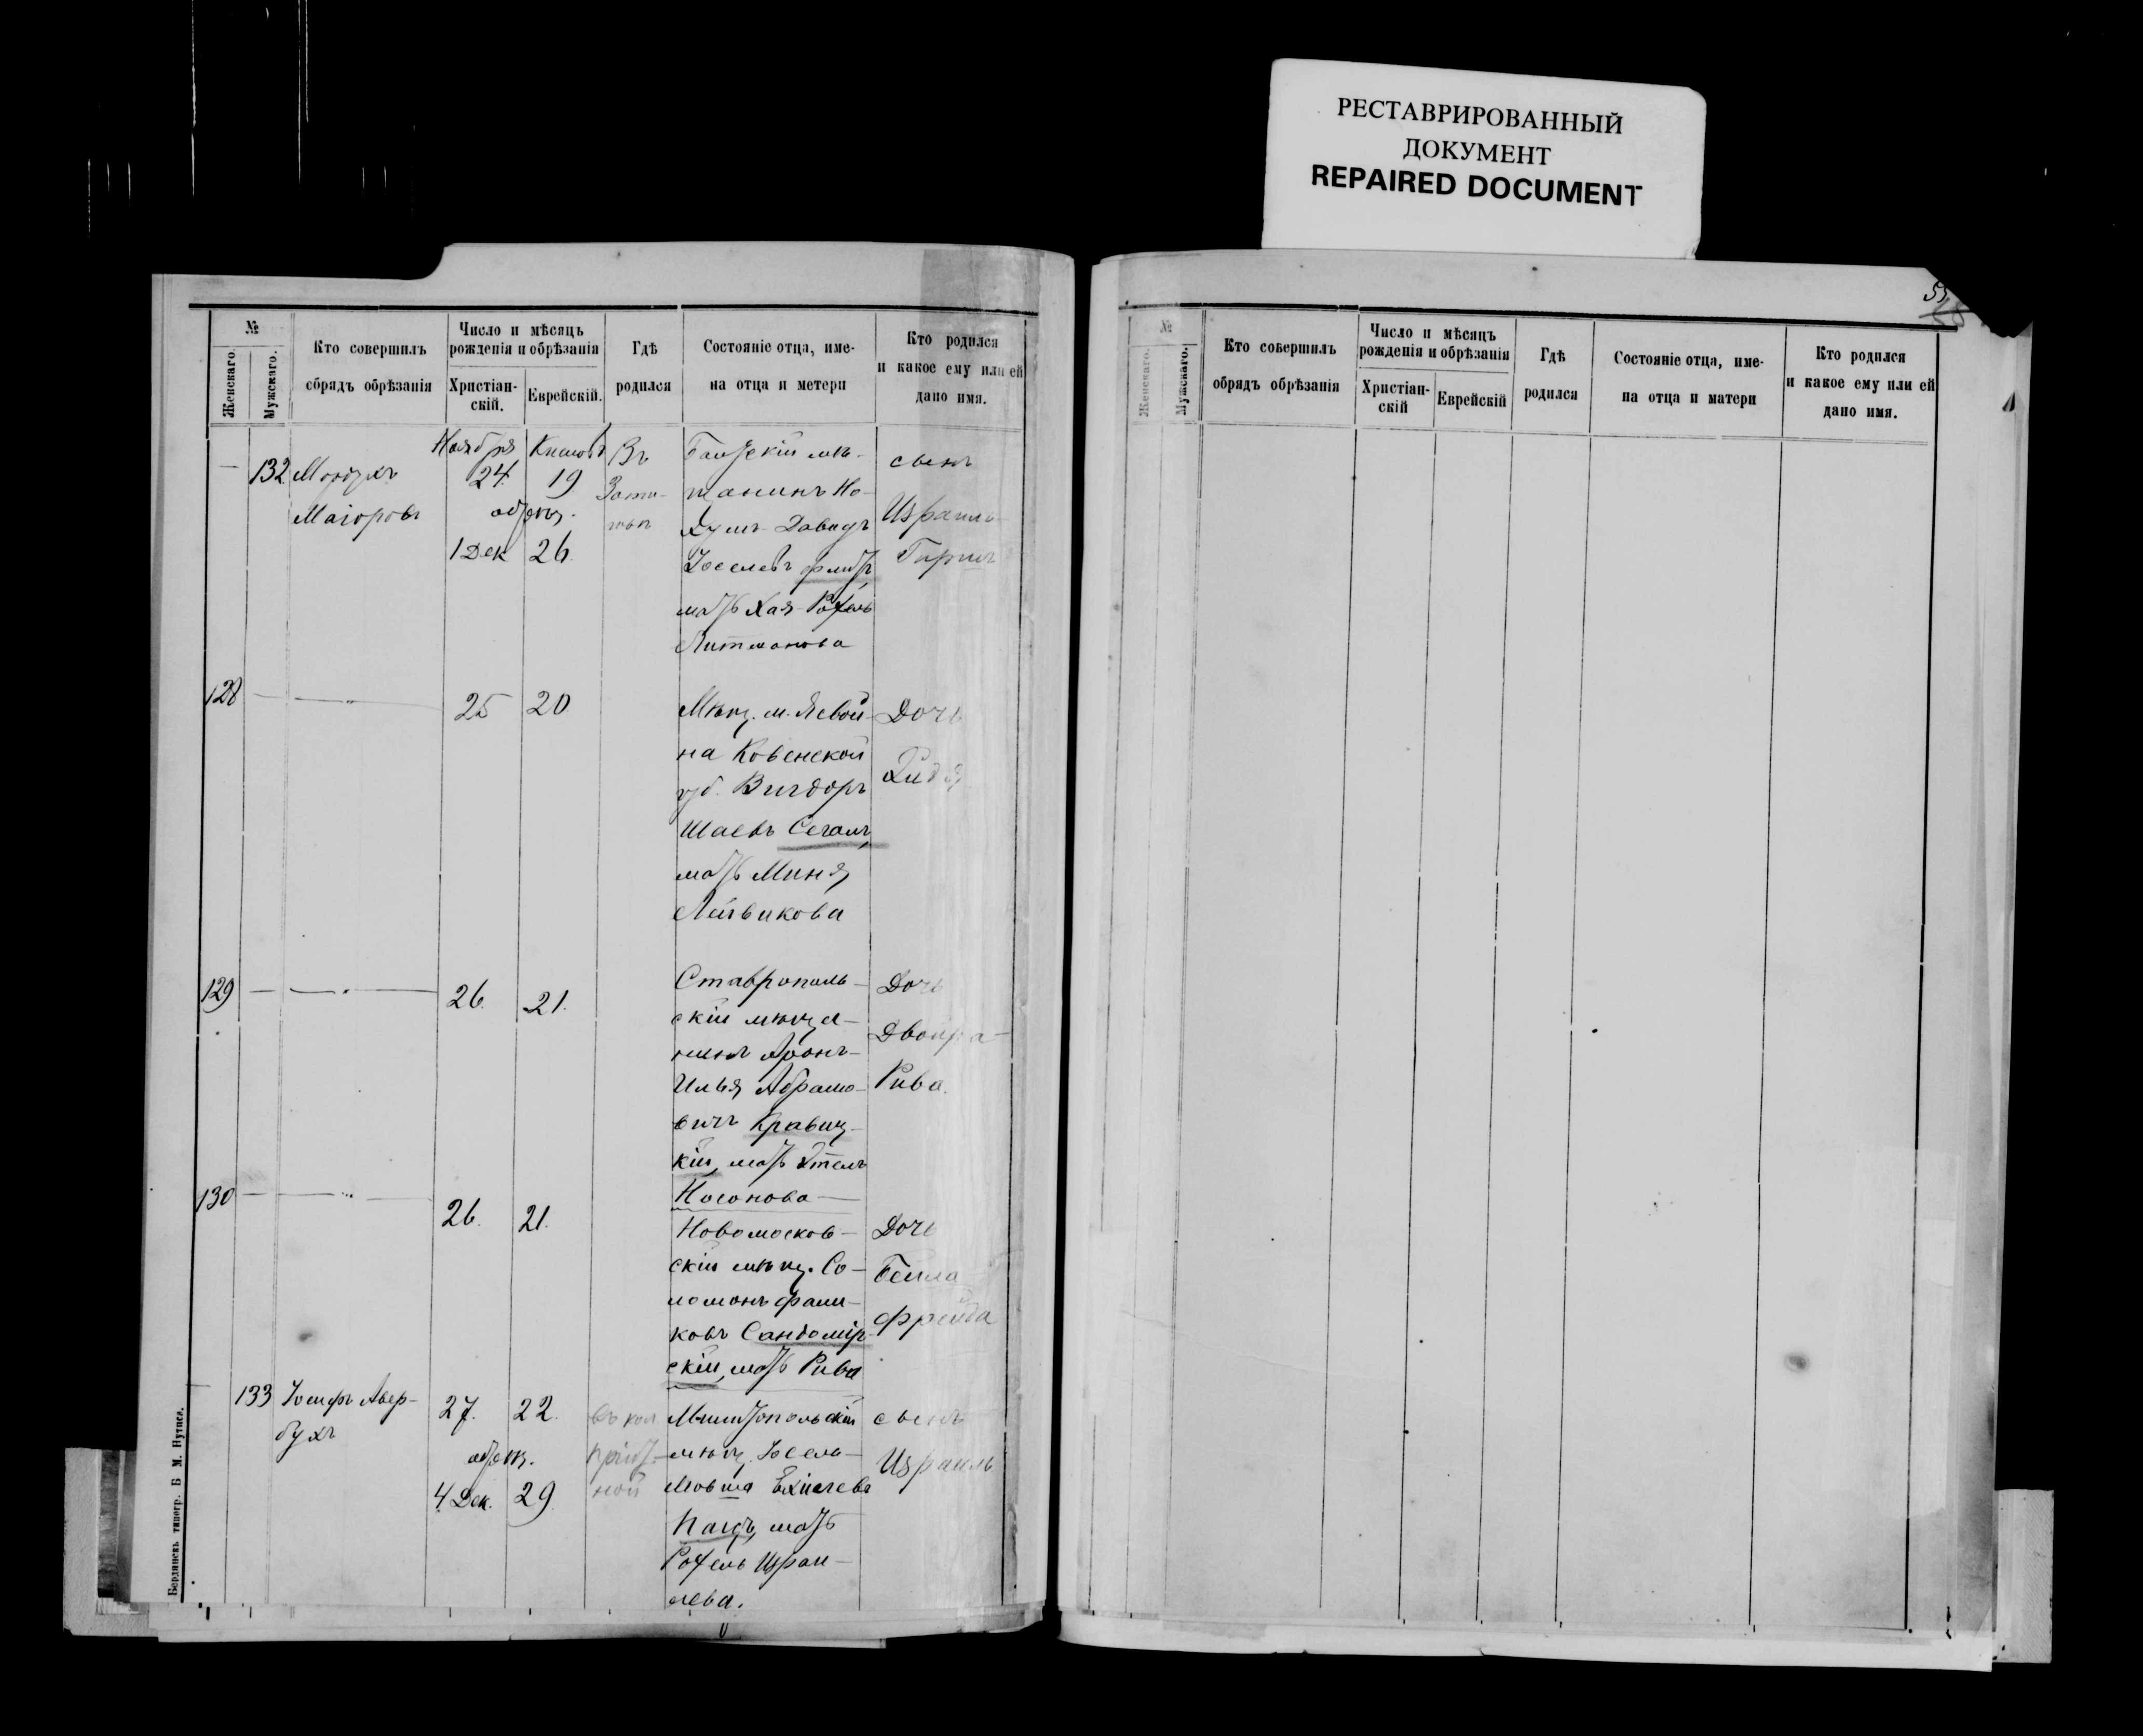 РЕСТАВРИРОВАННЫЙ
ДОКУМЕНТ
REPAIRED DOCUMENT
№
Женскаго.
Мужскаго.
Кто совершилъ
обрядъ обрѣзанія
Число и мѣсяцъ
рожденія и обрѣзанія
Христіан-
скій.
Еврейскій.
Гдѣ
родился
Состояніе отца, име-
на отца и метери
Кто родился
и какое ему или ей
дано имя.
132
Мордухъ
Маіоровъ
Ноября
24.
обрѣз.
1 Дек
19
26.
Въ
мѣ-
щанинъ Но-
хумъ Давидъ
Іоселевъ
мать Хая-Рахель
Литманова
сынъ
Израиль
Гиршъ
128
25
20
Мѣщ. м.
на Ковенской
губ. Вигдоръ
Шаевъ Сегалъ,
мать Миня
Лейвикова
Дочь
129
26.
21.
Ставрополь-
скій мѣща-
нинъ Аронъ-
Илья Абрамо-
вичъ Кравиц-
кій, мать Этель
Носонова
Дочь
Двойра-
Рива.
130
26.
21.
Новомосков-
скій мѣщ. Со-
ломонъ
ковъ Сандомір-
скій, мать Рива
Дочь
Бейла
Фрейда
133
Іосифъ Авер-
бухъ
27.
обрѣз.
4 Дек.
22.
29
въ кол
ной
мѣщ. Іосель-
Мовша Ехіелевъ
мать
Рохель Израи-
лева.
сынъ
Израиль
Бердянскъ типогр. Б М. Нутиса.
№
Женскаго.
Мужскаго.
Кто совершилъ
обрядъ обрѣзанія
Число и мѣсяцъ
рожденія и обрѣзанія
Христіан-
скій
Еврейскій
Гдѣ
родился
Состояніе отца, име-
на отца и матери
Кто родился
и какое ему или ей
дано имя.